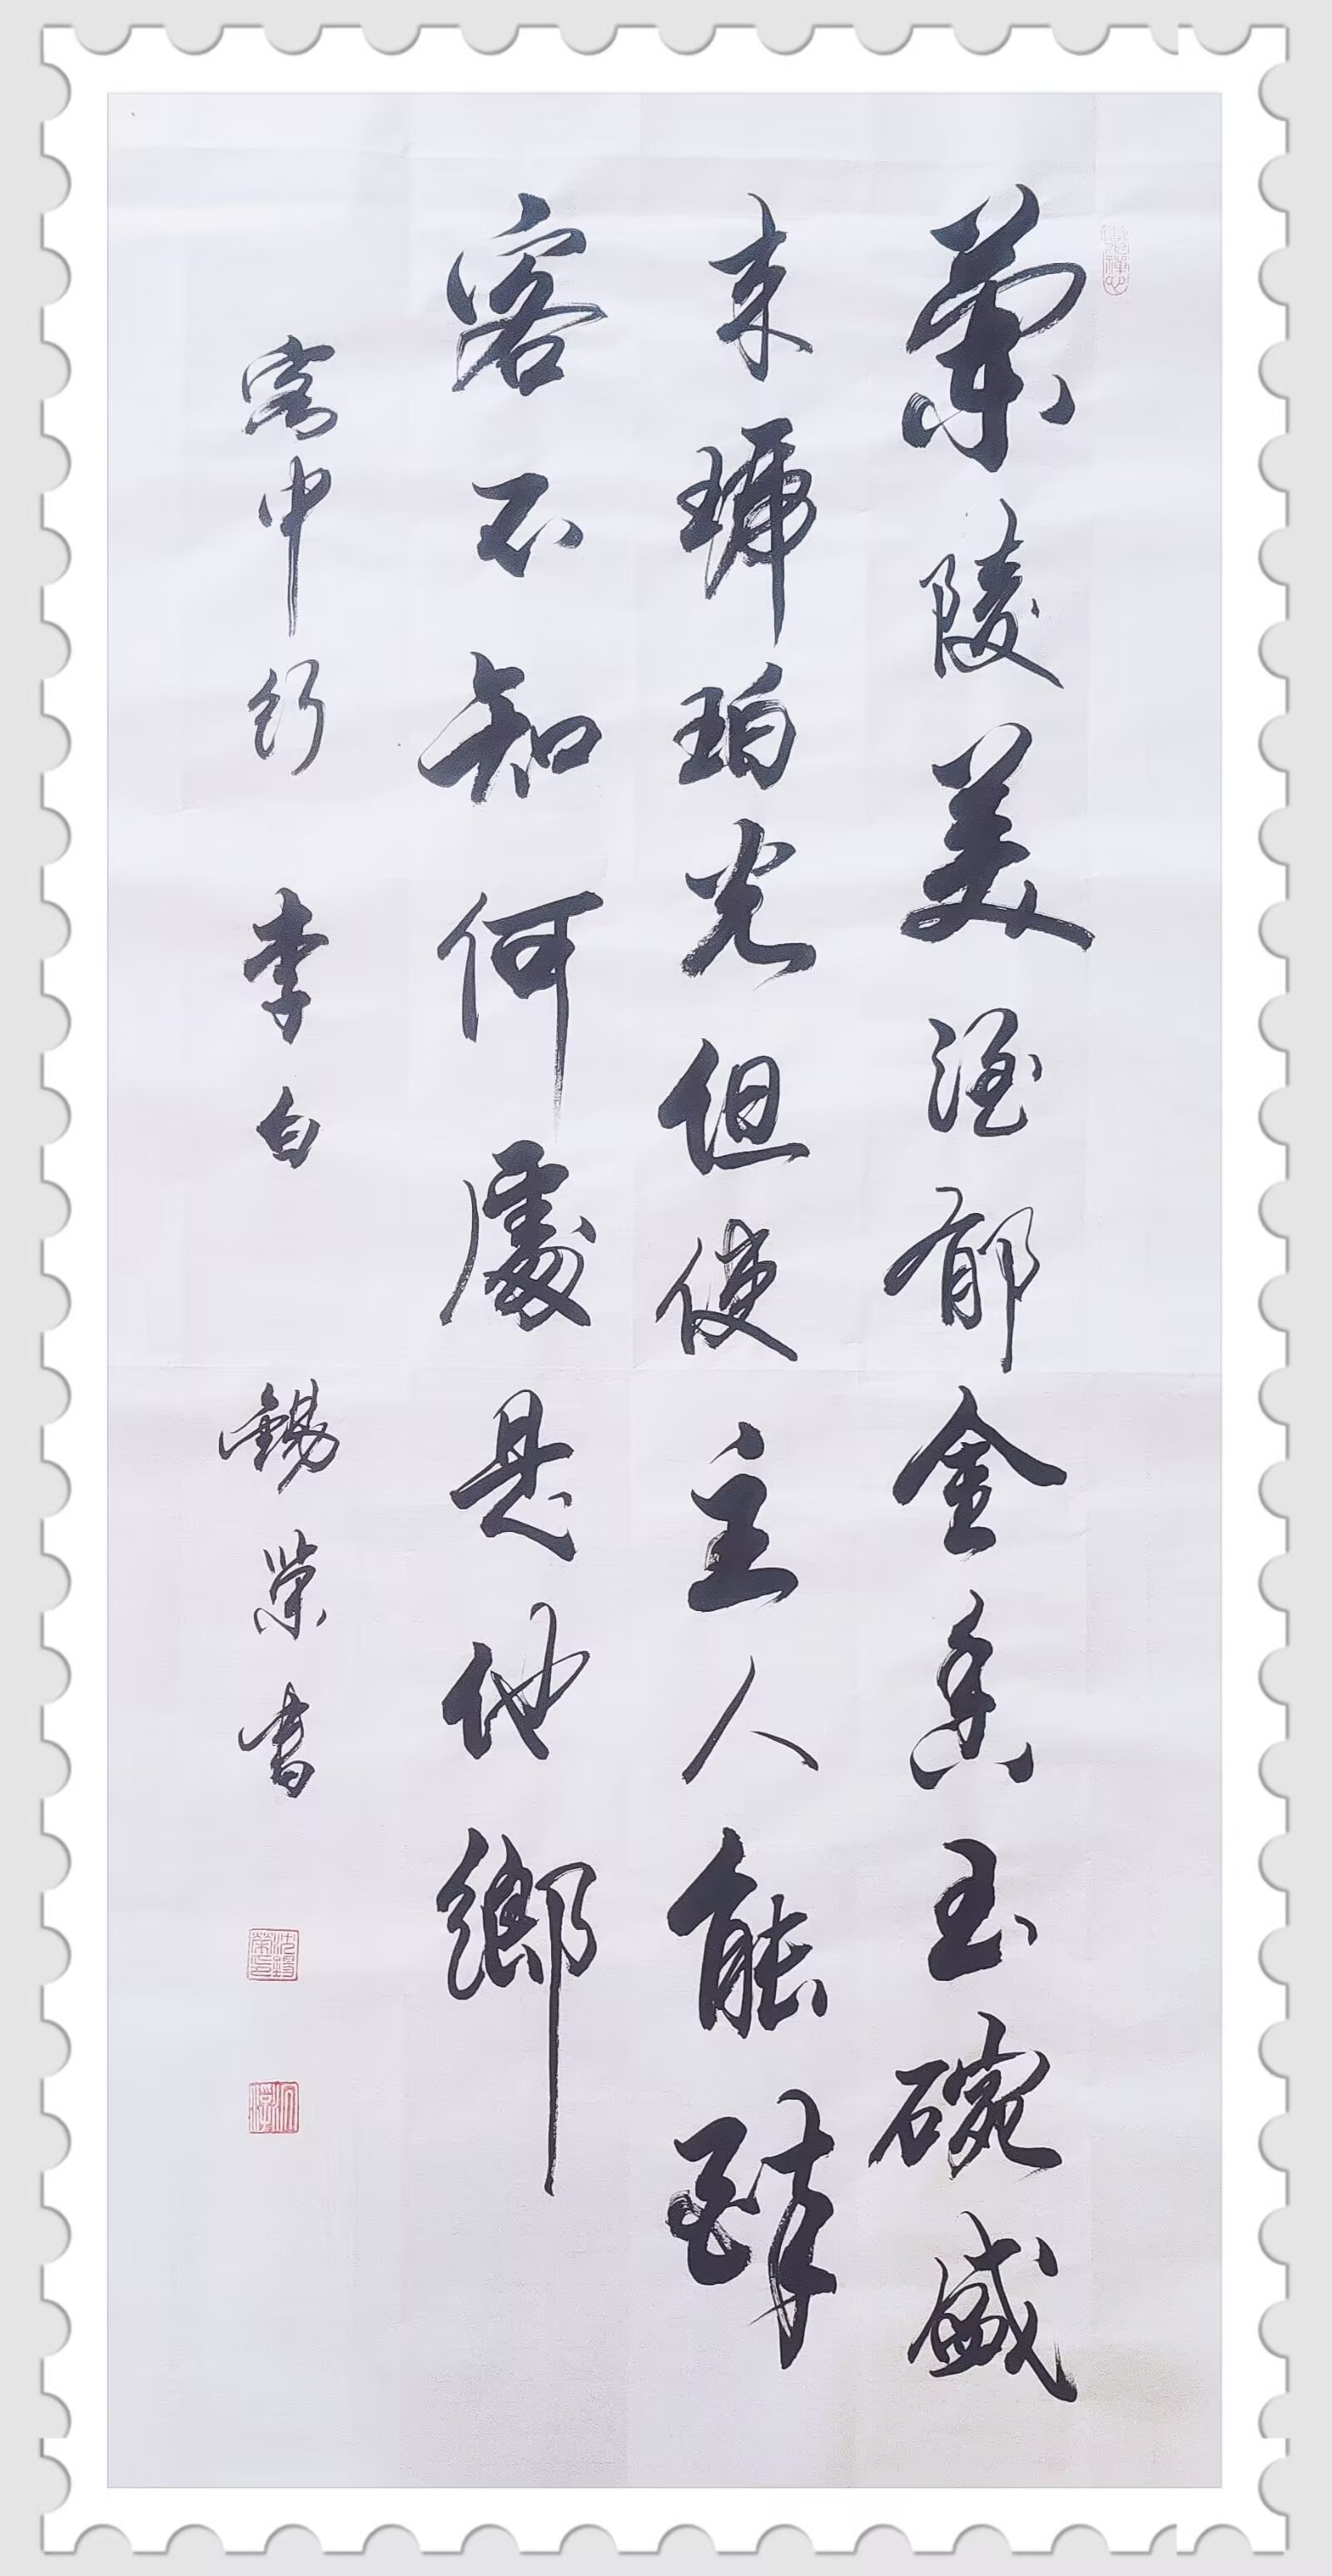 蘭陵美酒郁金香玉碗盛
来琥珀光但使主人能醉
客不知何處是他鄉
客中行 李白 錫榮書